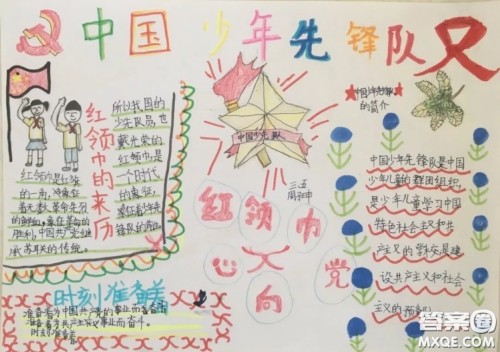 中国少年先锋队
红领巾的来历
所以我国的
少先队员也
戴光荣的
红领巾,是
一个时代
的象征,
红领巾是红旗
的一角,
胜利,中国共产党继
承苏联的传统。
中国少先队
三五
红领巾
心向党
中国少年先锋队
的简介
中国少年先锋队是中国
少年儿童的群团组织,
是少年儿童学习中国
特色社会主义和共
产主义的学校,是建
设共产主义和社会
主义的预备队
时刻准备着
准备着为中国共产党的事业而奋斗
准备着为共产主义事业而奋斗。
时刻准备着
答案圈
MXQE.COM